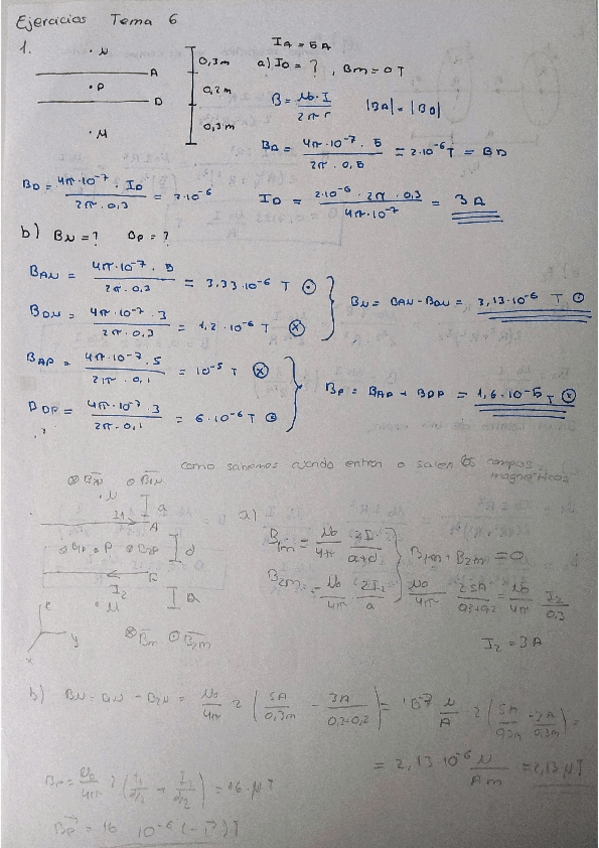 Ejercicios Tema 6
1.
· N
A
· P
D
· M
0,3m
0,2m
0,3m
IA = 5A
a) ID = ? , Bm = 0 T
B = μo · I / 2π · r |BA| = |BD|
BA = 4π·10⁻⁷ · 5 / 2π · 0,5 = 2·10⁻⁶ T = BD
BD = 4π·10⁻⁷ · ID / 2π · 0,3 = 2·10⁻⁶ ID = 2·10⁻⁶ · 2π · 0,3 / 4π·10⁻⁷ = 3 A
b) BN = ? BP = ?
BAN = 4π·10⁻⁷ · 5 / 2π · 0,3 = 3,33·10⁻⁶ T ⊙
BDN = 4π·10⁻⁷ · 3 / 2π · 0,3 = 1,2·10⁻⁶ T ⊗
BN = BAN - BDN = 2,13·10⁻⁶ T ⊙
BAP = 4π·10⁻⁷ · 5 / 2π · 0,1 = 10⁻⁵ T ⊗
BDP = 4π·10⁻⁷ · 3 / 2π · 0,1 = 6·10⁻⁶ T ⊙
BP = BAP + BDP = 1,6·10⁻⁵ T ⊗
como sabemos cuando entran o salen los campos
magnéticos
· N
a
I1
A
· P
d
I2
· M
a
z
y
x
⊗ B1m ⊙ B2m
a)
B1m = μo / 4π 2I / a+d
B2m = - μo / 4π 2I2 / a
B1m + B2m = 0
μo / 4π 2 5A / 0,3+0,2 = μo / 4π I2 / 0,3
I2 = 3A
b) BN = B1N - B2N = μo / 4π 2 ( 5A / 0,3m - 3A / 0,3+0,2 ) = 10⁻⁷ N / A 2 ( 5A / 0,3m - 3A / 0,5m ) =
= 2,13·10⁻⁶ N / Am = 2,13 μT
BP = μo / 4π 2 ( I1 / d/2 + I2 / d/2 ) = 16 · μT
BP = 16 10⁻⁶ (-i) T